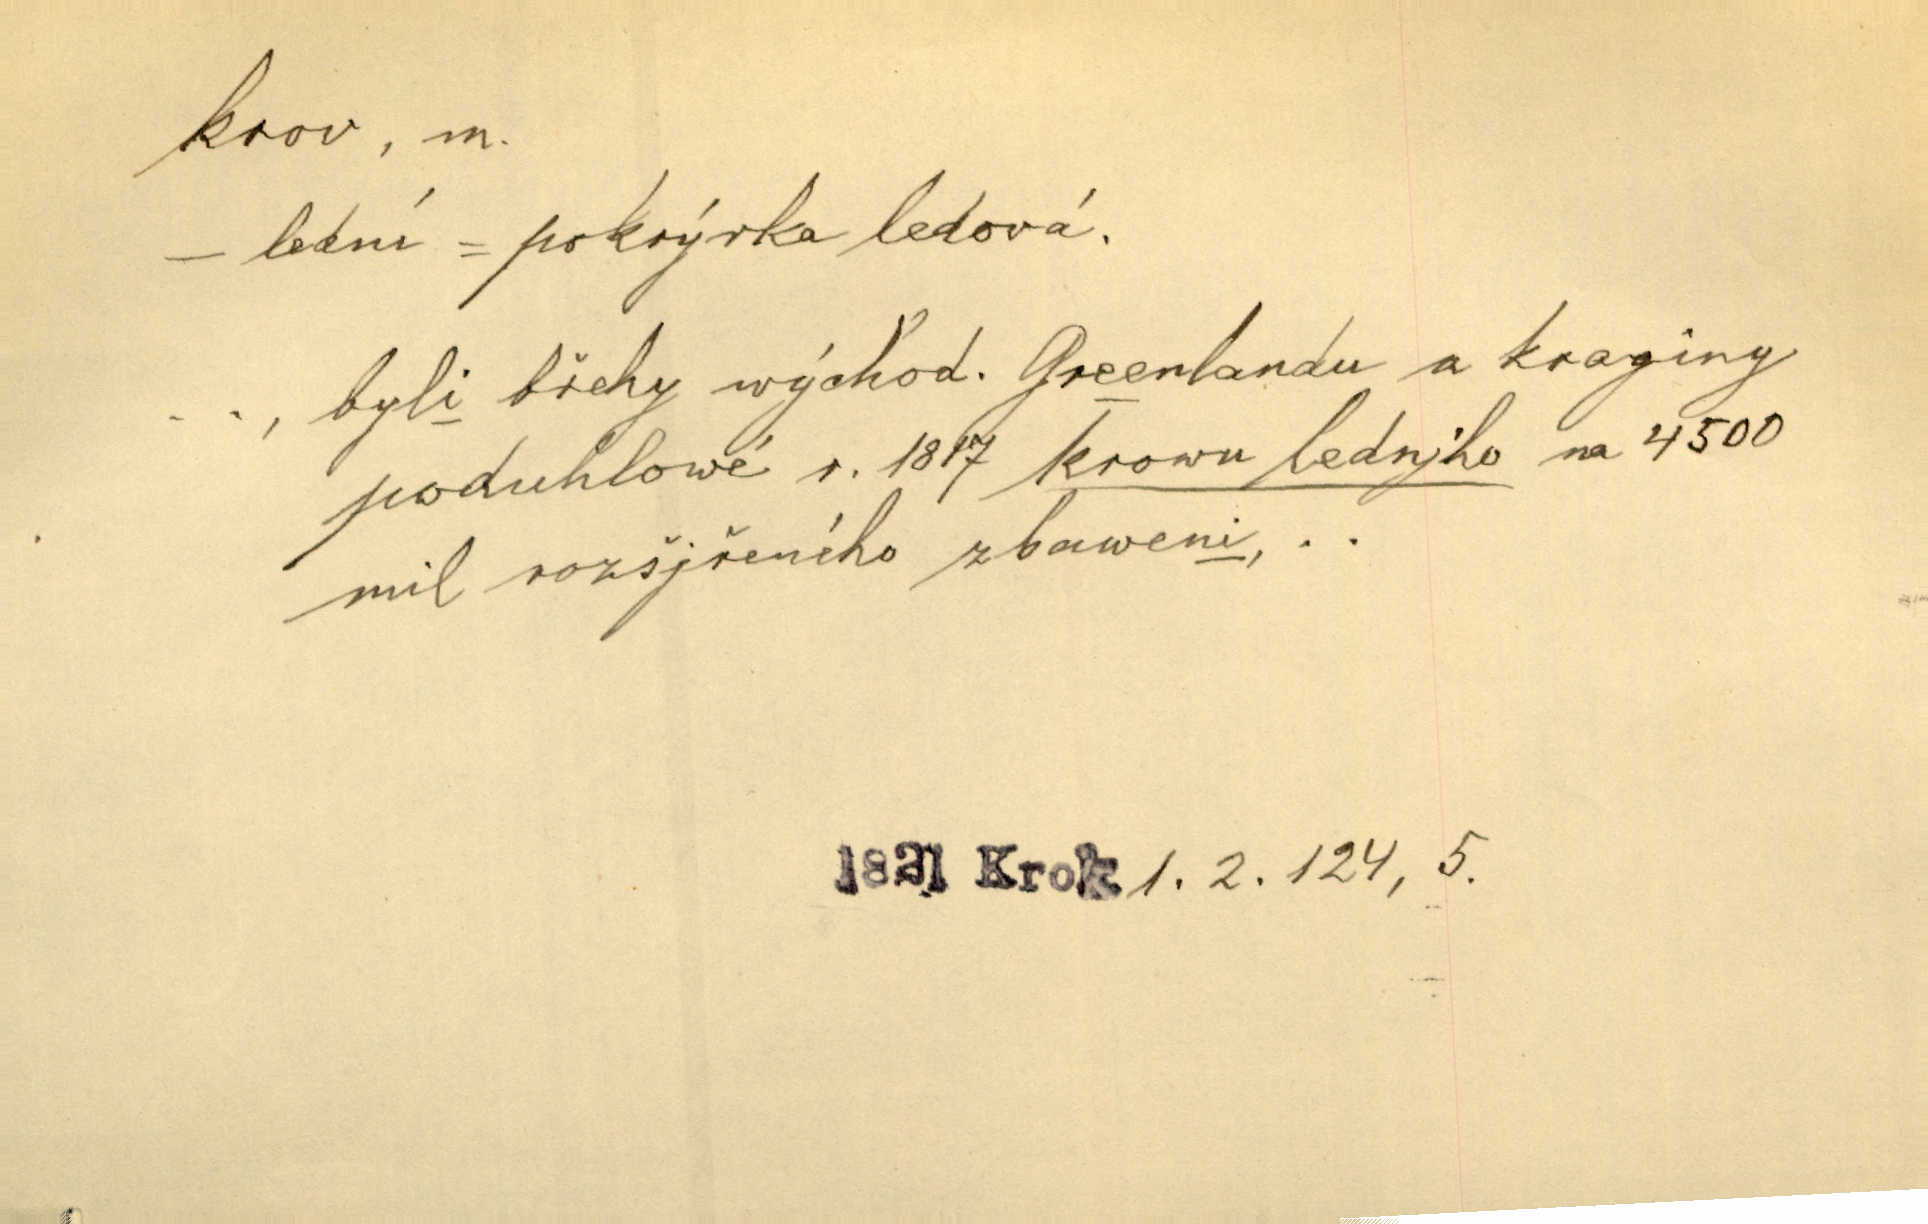 krov, m.
– lední = pokrývka ledová.
. ., byli břehy východ. Greenlandu a kraginy
poduhlowé r. 1817 krowu lednjho na 4500
mil rozšjřeného zbaweni, . .
1821 Krok 1. 2. 124, 5.